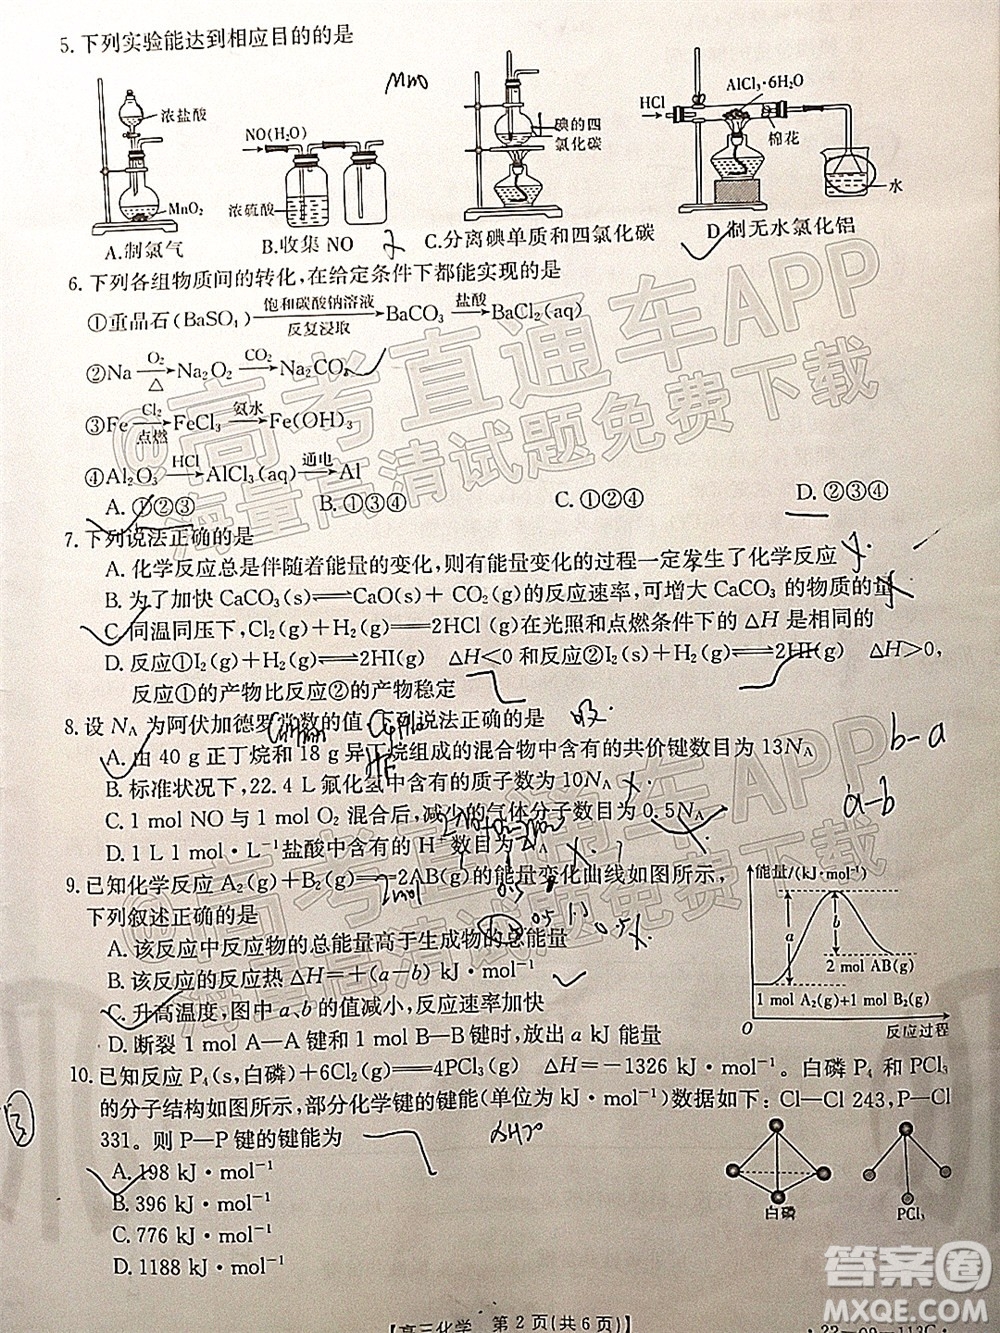 5. 下列实验能达到相应目的的是
MnO
浓盐酸
MnO₂
A.制氯气
NO(H₂O)
浓硫酸
B.收集 NO
碘的四
氯化碳
C.分离碘单质和四氯化碳
AlCl₃·6H₂O
HCl
棉花
水
D.制无水氯化铝
6. 下列各组物质间的转化,在给定条件下都能实现的是
①重晶石(BaSO₄) 饱和碳酸钠溶液 反复浸取 → BaCO₃ 盐酸 → BaCl₂(aq)
②Na O₂ △ → Na₂O₂ CO₂ → Na₂CO₃
③Fe Cl₂ 点燃 → FeCl₃ 氨水 → Fe(OH)₃
④Al₂O₃ HCl → AlCl₃(aq) 通电 → Al
A. ①②③ B. ①③④ C. ①②④ D. ②③④
7. 下列说法正确的是
A. 化学反应总是伴随着能量的变化,则有能量变化的过程一定发生了化学反应
B. 为了加快 CaCO₃(s)⇌CaO(s)+ CO₂(g)的反应速率,可增大 CaCO₃ 的物质的量
C. 同温同压下, Cl₂(g)+H₂(g)══2HCl(g)在光照和点燃条件下的 ΔH 是相同的
D. 反应①I₂(g)+H₂(g)⇌2HI(g) ΔH<0 和反应②I₂(s)+H₂(g)⇌2HI(g) ΔH>0,
反应①的产物比反应②的产物稳定
8. 设 N_A 为阿伏加德罗常数的值,下列说法正确的是
A. 由 40 g 正丁烷和 18 g 异丁烷组成的混合物中含有的共价键数目为 13N_A
HF
B. 标准状况下, 22.4 L 氟化氢中含有的质子数为 10N_A
C. 1 mol NO 与 1 mol O₂ 混合后,减少的气体分子数为 0.5N_A
D. 1 L 1 mol·L⁻¹盐酸中含有的 H⁺数目为 N_A
b-a
a-b
9. 已知化学反应 A₂(g)+B₂(g)══2AB(g)的能量变化曲线如图所示,
下列叙述正确的是
2mol
0.5
A. 该反应中反应物的总能量高于生成物的总能量
B. 该反应的反应热 ΔH=+(a-b) kJ·mol⁻¹
C. 升高温度,图中 a、b 的值减小,反应速率加快
D. 断裂 1 mol A—A 键和 1 mol B—B 键时,放出 a kJ 能量
能量/(kJ·mol⁻¹)
a
b
2 mol AB(g)
1 mol A₂(g)+1 mol B₂(g)
O
反应过程
10. 已知反应 P₄(s,白磷)+6Cl₂(g)══4PCl₃(g) ΔH=-1326 kJ·mol⁻¹。白磷 P₄ 和 PCl₃
的分子结构如图所示,部分化学键的键能(单位为 kJ·mol⁻¹)数据如下: Cl—Cl 243, P—Cl
331。则 P—P 键的键能为
3
A. 198 kJ·mol⁻¹
B. 396 kJ·mol⁻¹
C. 776 kJ·mol⁻¹
D. 1188 kJ·mol⁻¹
白磷
PCl₃
【高三化学 第 2 页(共 6 页)】
·23-09-113C·
@高考直通车APP
海量高清试题免费下载
@高考直通车APP
海量高清试题免费下载
答案圈
MXQE.COM